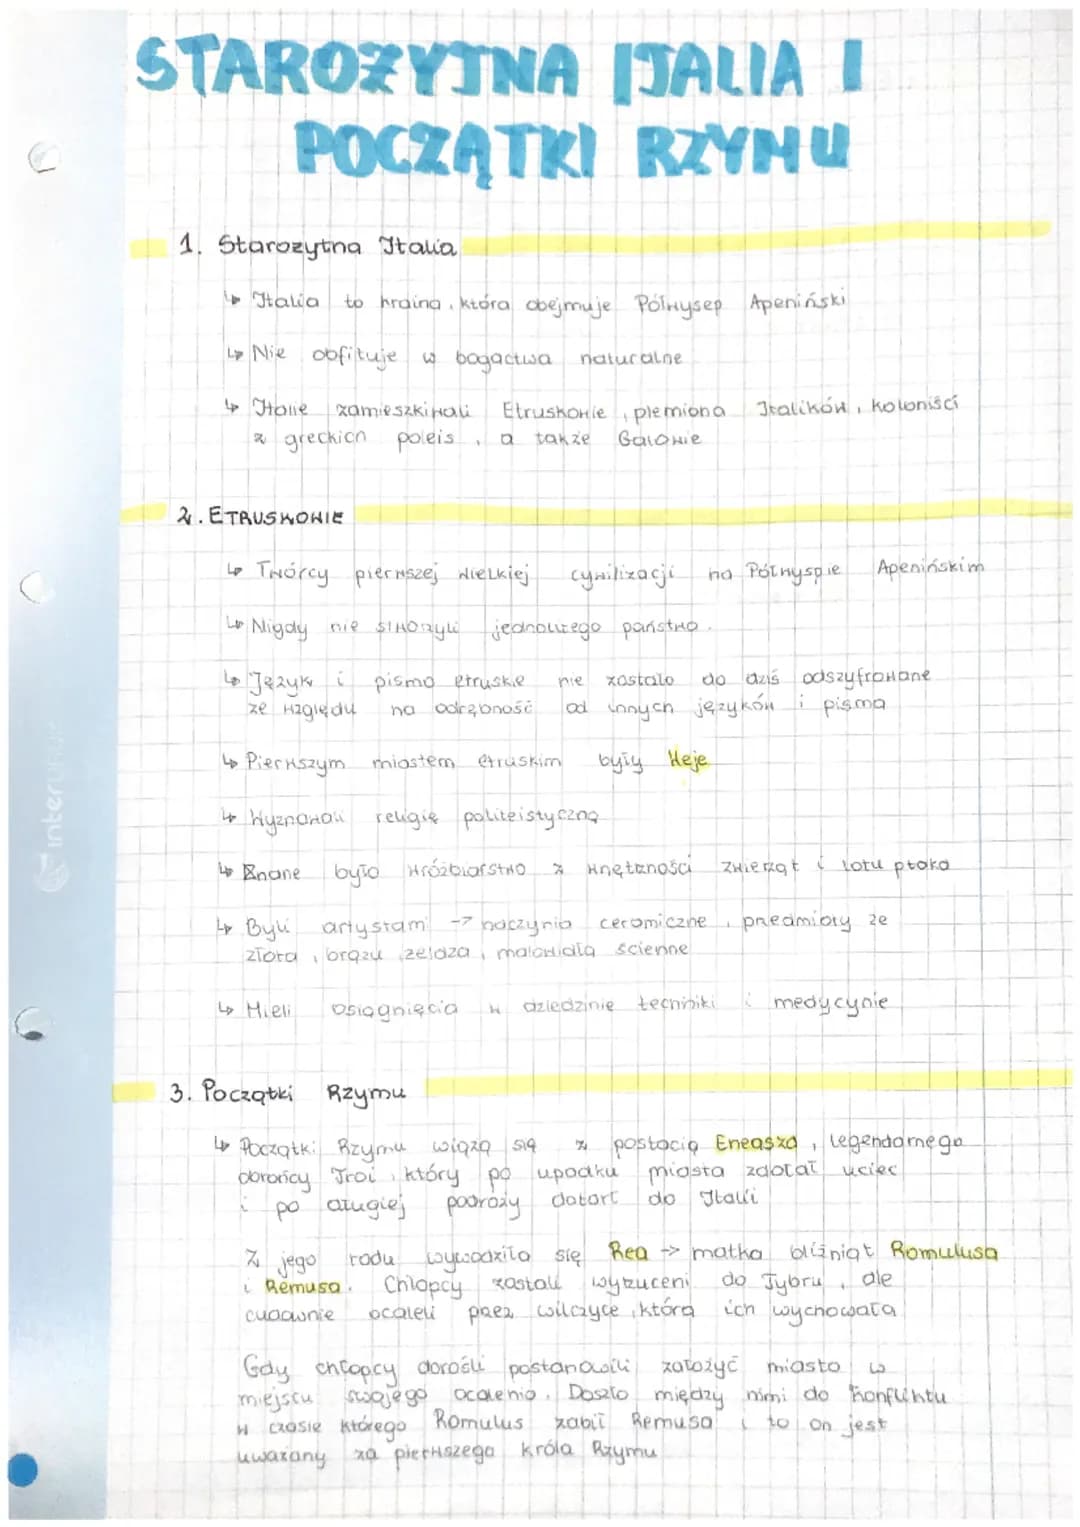 STAROŻYTNA ITALIA I
POCZĄTKI RZYMU
1. Starożytna Italia
↳ Italia to kraina, która obejmuje Półwysep Apeniński
↳ Nie obfituje w bogactwa naturalne
↳ Italie zamieszkiwali Etruskowie, plemiona Italików, koloniści
z greckich poleis, a także Galowie
2. ETRUSKOWIE
↳ Twórcy pierwszej wielkiej cywilizacji na Półwyspie Apenińskim
↳ Nigdy nie stworzyli jednolitego państwa.
↳ Język i pismo etruskie nie zostało do dziś odszyfrowane
ze względu na odrębność od innych języków i pisma
↳ Pierwszym miastem etruskim były Weje
↳ Wyznawali religię politeistyczną
↳ Znane było wróżbiarstwo z wnętrzności zwierząt i lotu ptaka
↳ Byli artystami -> naczynia ceramiczne, przedmioty ze
złota, brązu, żelaza, malowidła ścienne
↳ Mieli osiągnięcia w dziedzinie techniki i medycynie
3. Początki Rzymu
↳ Początki Rzymu wiążą się z postacią Eneasza, legendarnego
obrońcy Troi, który po upadku miasta zdołał uciec
i po długiej podróży dotarł do Italii
Z jego rodu wywodziła się Rea -> matka bliźniąt Romulusa
i Remusa. Chłopcy zostali wyrzuceni do Tybru, ale
cudownie ocaleli przez wilczyce, która ich wychowała
Gdy chłopcy dorośli postanowili założyć miasto w
miejscu swojego ocalenia. Doszło między nimi do konfliktu
w czasie którego Romulus zabił Remusa i to on jest
uważany za pierwszego króla Rzymu
interdruk